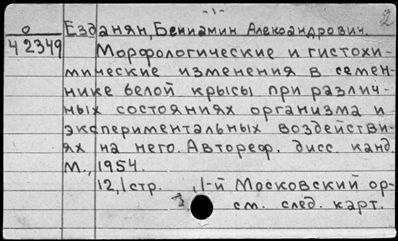 -1-
2
0 Езданян, Бениамин Александрович.
42349 Морфологические и гистохи-
мические изменения в семен-
нике белой крысы при различ-
ных состояниях организма и
экспериментальных воздействи-
ях на него. Автореф. дисс. канд.
М., 1954.
12,1 стр. 1-й Московский ор-
см. след. карт.